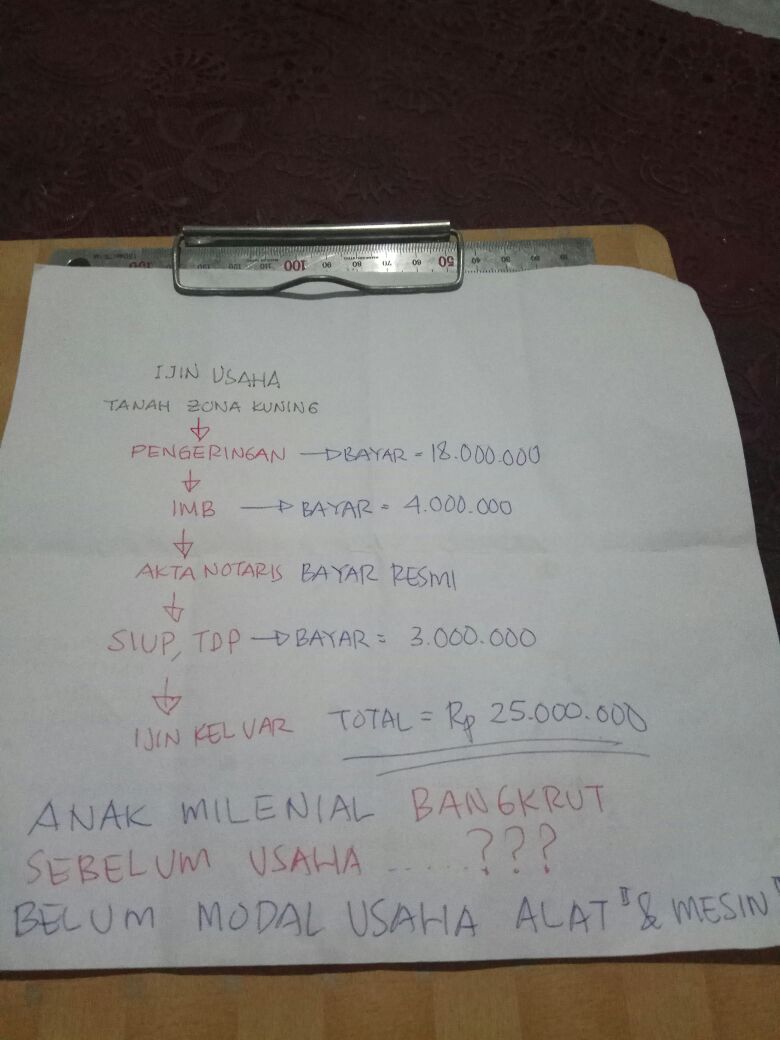 100 90 80 70 60 50 40 30
IJIN USAHA
TANAH ZONA KUNING
PENGERINGAN → BAYAR = 18.000.000
IMB → BAYAR = 4.000.000
AKTA NOTARIS BAYAR RESMI
SIUP, TDP → BAYAR = 3.000.000
IJIN KELUAR TOTAL = Rp 25.000.000
ANAK MILENIAL BANGKRUT
SEBELUM USAHA ......???
BELUM MODAL USAHA ALAT" & MESIN"